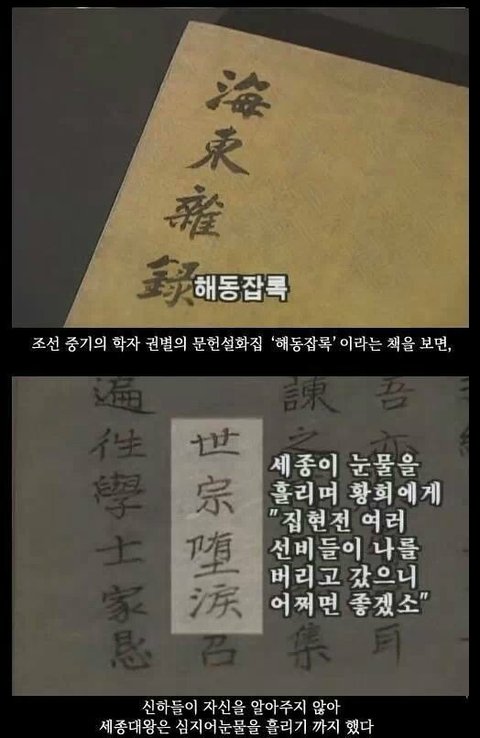 海東雜錄
해동잡록
조선 중기의 학자 권별의 문헌설화집 ‘해동잡록’ 이라는 책을 보면,
吾亦耳
諫之集
世宗墮淚召
遍往學士家懇
세종이 눈물을
흘리며 황희에게
"집현전 여러
선비들이 나를
버리고 갔으니
어쩌면 좋겠소"
신하들이 자신을 알아주지 않아
세종대왕은 심지어눈물을 흘리기 까지 했다